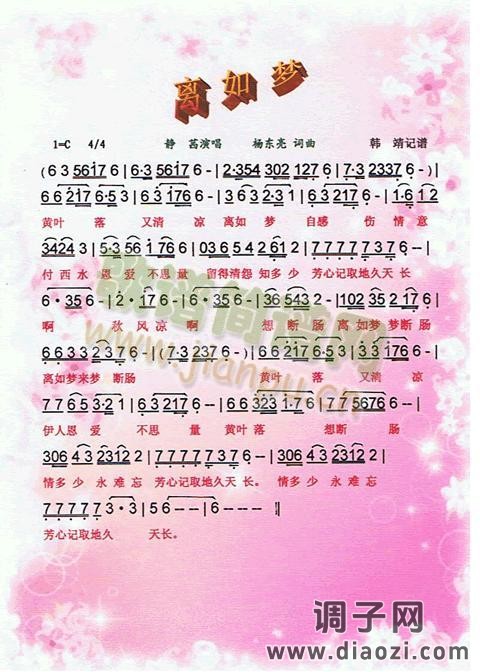 离如梦
1=C 4/4 静 茗演唱 杨东亮 词曲 韩 靖记谱
(6 3 5617 6 | 6·3 5617 6 - | 2·354 302 127 6 | 7·3 2337 6 - )
6 6 217 6·5 3 | 6 3 176 6 - | 6 6 217 6·5 3 | 6 3 217 6 - | 1·6 1 2
黄叶 落 又清 凉 离如 梦 自感 伤 情 意
3424 3 | 5·3 56 1 766 | 036 5 4 2 612 | 7 7 7 7 7 3 7 6 - - |
付 西 水 恩 爱 不思 量 留得清怨 知多 少 芳心记取地久天 长
6 · 35 6 - | 2 · 17 6 - | 6 · 35 6 - | 36 543 2 - | 102 35 217 6 |
啊 秋风凉 啊 想断肠 离如梦梦断肠
6 6 3 3 2 37 6 - | (7·3 237 6 - ) | 6 6 217 6·5 3 | 3 3 176 6 - |
离如梦来梦 断肠 黄叶 落 又清 凉
7 7 6 5 3 5 6 2 3 - | 6 6 323 1·7 6 | 7 7 5676 6 - |
伊人恩 爱 不思 量 黄叶 落 想断 肠
306 4 3 2312 2 - | 7 7 7 7 7 3 7 6 - - | 306 4 3 2312 2 - |
情多少 永 难忘 芳心记取地久天 长。 情多少 永 难忘
7 7 7 7 7 3 · 3 | 5 6 - - | 6 - - - ‖
芳心记取地久 天长。
歌谱简谱网
www.jianpu.cn
调子网
www.diaozi.com